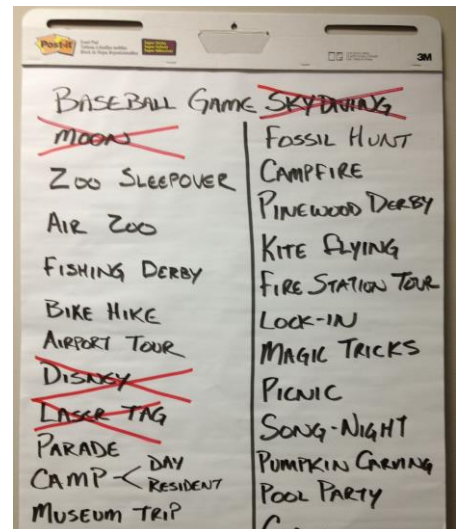 Post-it
3M
BASEBALL GAME
MOON
ZOO SLEEPOVER
AIR ZOO
FISHING DERBY
BIKE HIKE
AIRPORT TOUR
DISNEY
LASER TAG
PARADE
CAMP < DAY
RESIDENT
MUSEUM TRIP
SKYDIVING
FOSSIL HUNT
CAMPFIRE
PINEWOOD DERBY
KITE FLYING
FIRE STATION TOUR
LOCK-IN
MAGIC TRICKS
PICNIC
SONG-NIGHT
PUMPKIN CARVING
POOL PARTY